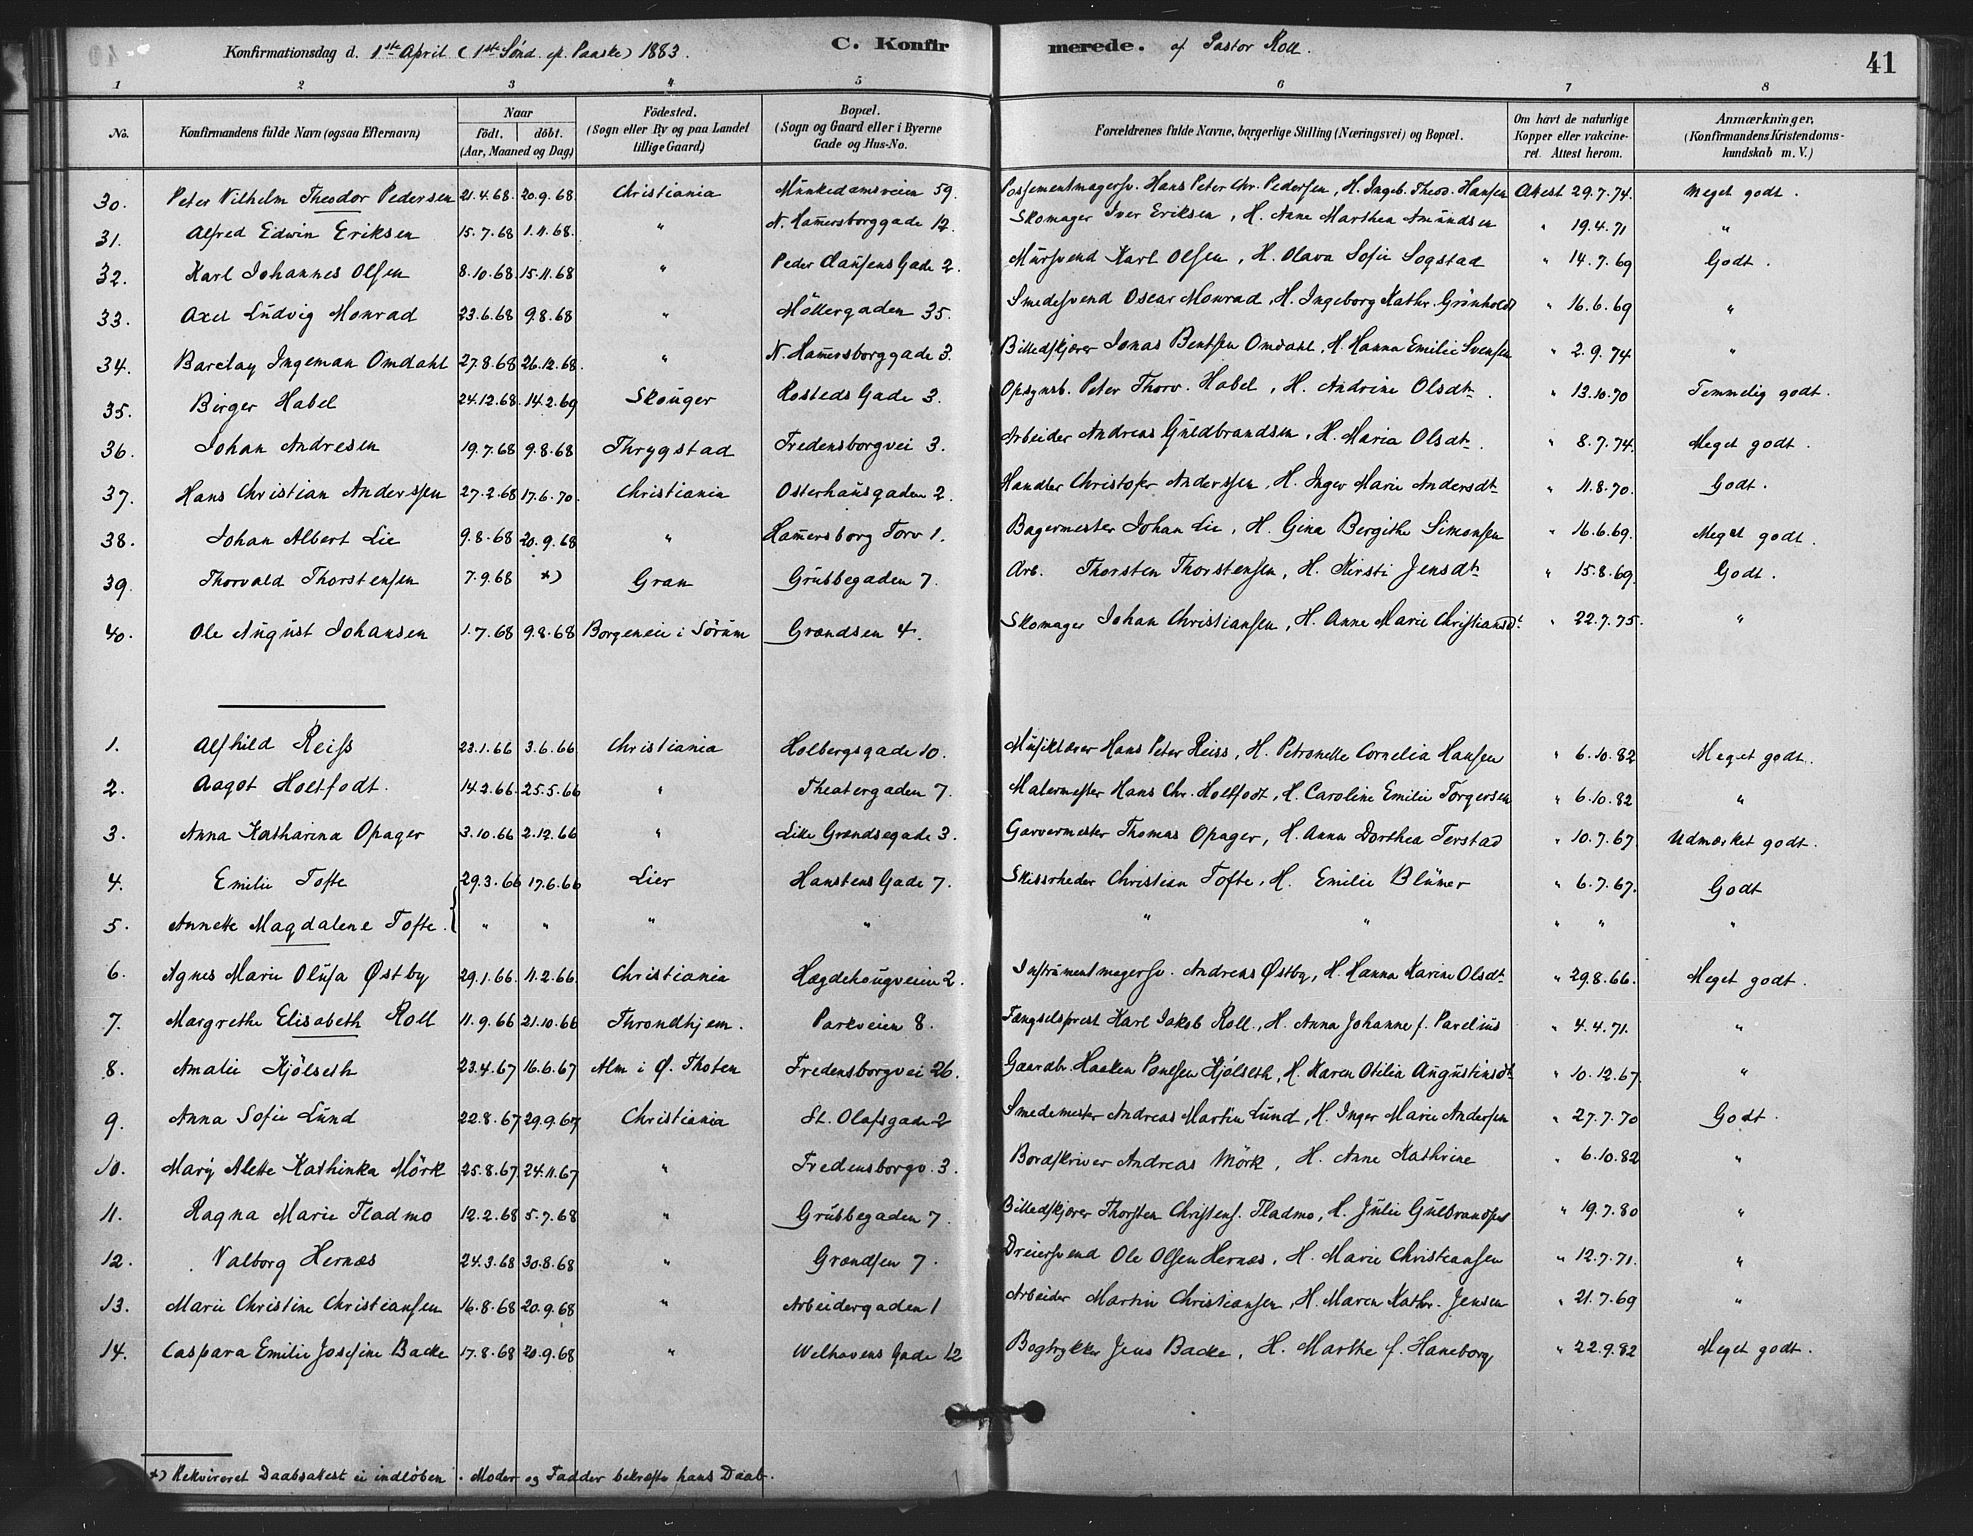 Konfirmationsdag d. 1ste April (1ste Sönd. ep. Paaske) 1883. C. Konfirmerede. af Pastor Roll. 41
1 2 3 4 5 6 7 8
No. Konfirmandens fulde Navn (ogsaa Efternavn) Naar födt. döbt. (Aar, Maaned og Dag) Födested. (Sogn eller By og paa Landet tillige Gaard) Bopæl. (Sogn og Gaard eller i Byerne Gade og Hus-No. Forældrenes fulde Navne, borgerlige Stilling (Næringsvei) og Bopæl. Om havt de naturlige Kopper eller vakcineret. Attest herom. Anmærkninger, (Konfirmandens Kristendomskundskab m. V.)
30. Peter Vilhelm Theodor Pedersen 21.4.68. 20.9.68 Christiania Munkedamsveien 59. Possementmagersv. Hans Peter Chr. Pedersen, H. Ingeb. Theod. Hansen Attest 29.7.74. Meget godt.
31. Alfred Edwin Eriksen 15.7.68 1.11.68. " N. Hamersborggade 12. Skomager Iver Eriksen, H. Anne Marthea Amundsen " 19.4.71 "
32. Karl Johannes Olsen 8.10.68 15.11.68 " Peder Clausens Gade 2. Mursvend Karl Olsen, H. Olava Sofie Sogstad " 14.7.69 Godt.
33. Axel Ludvig Monrad 23.6.68 9.8.68 " Möllergaden 35. Smedesvend Oscar Monrad, H. Ingeborg Kathr. Grönholdt " 16.6.69 "
34. Barclay Ingeman Omdahl 27.8.68 26.12.68. " N. Hamersborggade 3. Billedskjærer Jonas Bentsen Omdahl, H. Hanna Emilie Svensen " 2.9.74 "
35. Birger Habel 24.12.68. 14.2.69 Skouger Rosteds Gade 3. Opsynsb. Peter Thorv. Habel, H. Andrine Olsdt. " 13.10.70 Temmelig godt.
36. Johan Andresen 19.7.68 9.8.68 Thrygstad Fredensborgvei 3. Arbeider Andreas Guldbrandsen, H. Maria Olsdt. " 8.7.74. Meget godt.
37. Hans Christian Anderssen 27.2.68 17.6.70. Christiania Osterhausgaden 2. Handler Christofer Anderssen, H. Inger Marie Andersdt " 11.8.70. Godt.
38. Johan Albert Lie 9.8.68 20.9.68 " Hamersborg Torv 1. Bagermester Johan Lie, H. Gina Bergithe Simonsen " 16.6.69. Meget godt.
39. Thorvald Thorstensen 7.9.68 *) Gran Grubbegaden 7. Arb. Thorsten Thorstensen, H. Kirsti Jensdt " 15.8.69. Godt.
40. Ole August Johansen 1.7.68 9.8.68 Borgeneie i Sörum Grændsen 4. Skomager Johan Christiansen, H. Anne Marie Christiansdt. " 22.7.75. "
1. Alfhild Reiss 23.1.66 3.6.66 Christiania Holbergsgade 10. Musiklærer Hans Peter Reiss, H. Petronelle Cornelia Hansen " 6.10.82 Meget godt.
2. Aagot Holtfodt. 14.2.66. 25.5.66 " Theatergaden 7. Malermester Hans Chr. Holtfodt, H. Caroline Emilie Torgersen " 6.10.82 "
3. Anna Katharina Opager 3.10.66 2.12.66 " Lille Grændsegade 3. Garvermester Thomas Opager, H. Anna Dorthea Terstad " 10.7.67 Udmærket godt.
4. Emilie Tofte 29.3.66 17.6.66 Lier Hanstens Gade 7. Skibsrheder Christian Tofte, H. Emilie Blumer " 6.7.67. Godt
5. Annette Magdalene Tofte. " " " " " " " " "
6. Agnes Marie Olusa Østby 29.1.66. 11.2.66 Christiania Hægdehougveien 2. Instrumentmagersv. Andreas Østby, H. Hanna Karine Olsdt. " 29.8.66. Meget godt.
7. Margrethe Elisabeth Roll 11.9.66 21.10.66 Throndhjem. Parkveien 8. Fængselsprest Karl Jakob Roll, H. Anna Johanne f. Parelius " 4.4.71. "
8. Amalie Kjölseth 23.4.67 16.6.67 Alm i Ø. Thoten Fredensborgvei 26. Gaardbr. Haaken Poulsen Kjölseth, H. Karen Otilia Augustinsdt " 10.12.67. "
9. Anna Sofie Lund 22.8.67 29.9.67 Christiania St. Olafsgade 2 Smedemester Andreas Martin Lund, H. Inger Marie Andersen " 27.7.70 Godt.
10. Mary Alette Kathinka Mörk 25.8.67 24.11.67 " Fredensborgv. 3. Bordskriver Andreas Mörk, H. Anne Kathrine " 6.10.82 "
11. Ragna Marie Fladmo 12.2.68 5.7.68 " Grubbegaden 7. Billedskjærer Thorsten Christens. Fladmo, H. Julie Gulbrandsen " 19.7.80 "
12. Valborg Hernæs 24.3.68 30.8.68 " Grændsen 7. Dreiersvend Ole Olsen Hernæs, H. Marie Christiansen " 12.7.71. "
13. Marie Christine Christiansen 16.8.68 20.9.68 " Arbeidergaden 1 Arbeider Martin Christiansen, H. Maren Kathr. Jensen " 21.7.69 "
14. Caspara Emilie Josefine Backe 17.8.68 20.9.68 " Welhavens Gade 12 Bogtrykker Jens Backe, H. Marthe f. Haneborg " 22.9.82 Meget godt.
*) Rekvireret Daabsattest ei indlöben. Moder og Fadder bekræfte hans Daab.